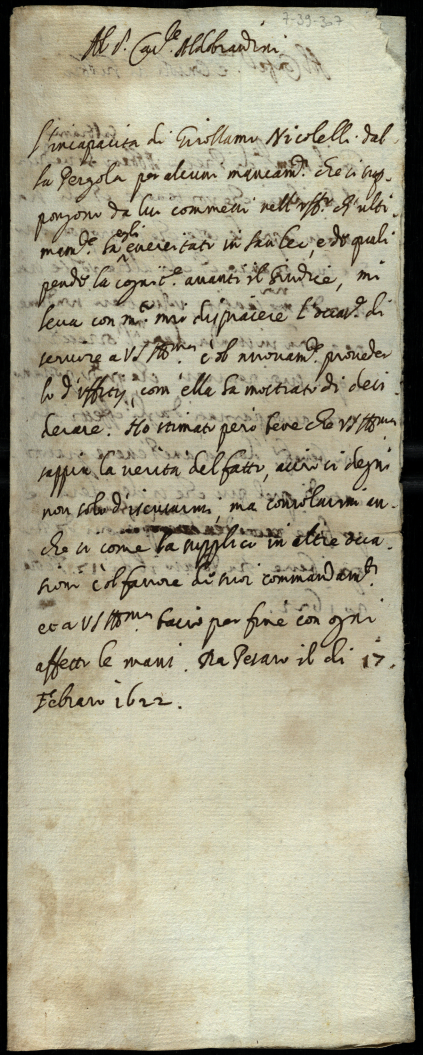 7-39-367
Al S. Car.le Aldobrandini
L'incapacità di Girollamo Nicolelli dal
la Pergola per alcuni mancam.ti che si sup
pongono da lui commessi nell'uff.o ch'ulti
mam.te ha egli essercitato in San Leo, e de quali
pende la cognit.e avanti il Giudice, mi
leva con m.to mio dispiacere l'occas.e di
servire a VS Ill.ma col nuovam.te proveder
lo d'officio, com' ella ha mostrato di desi
derare. Ho stimato però bene che VS Ill.ma
sappia la verità del fatto, acciò si degni
non solo di scusarmi, ma consolarmi an
che si come la supplico in altre occa
sioni col favore de suoi commandam.ti
et a VS Ill.ma bacio per fine con ogni
affetto le mani. Da Pesaro il di 17.
Febraro 1622.